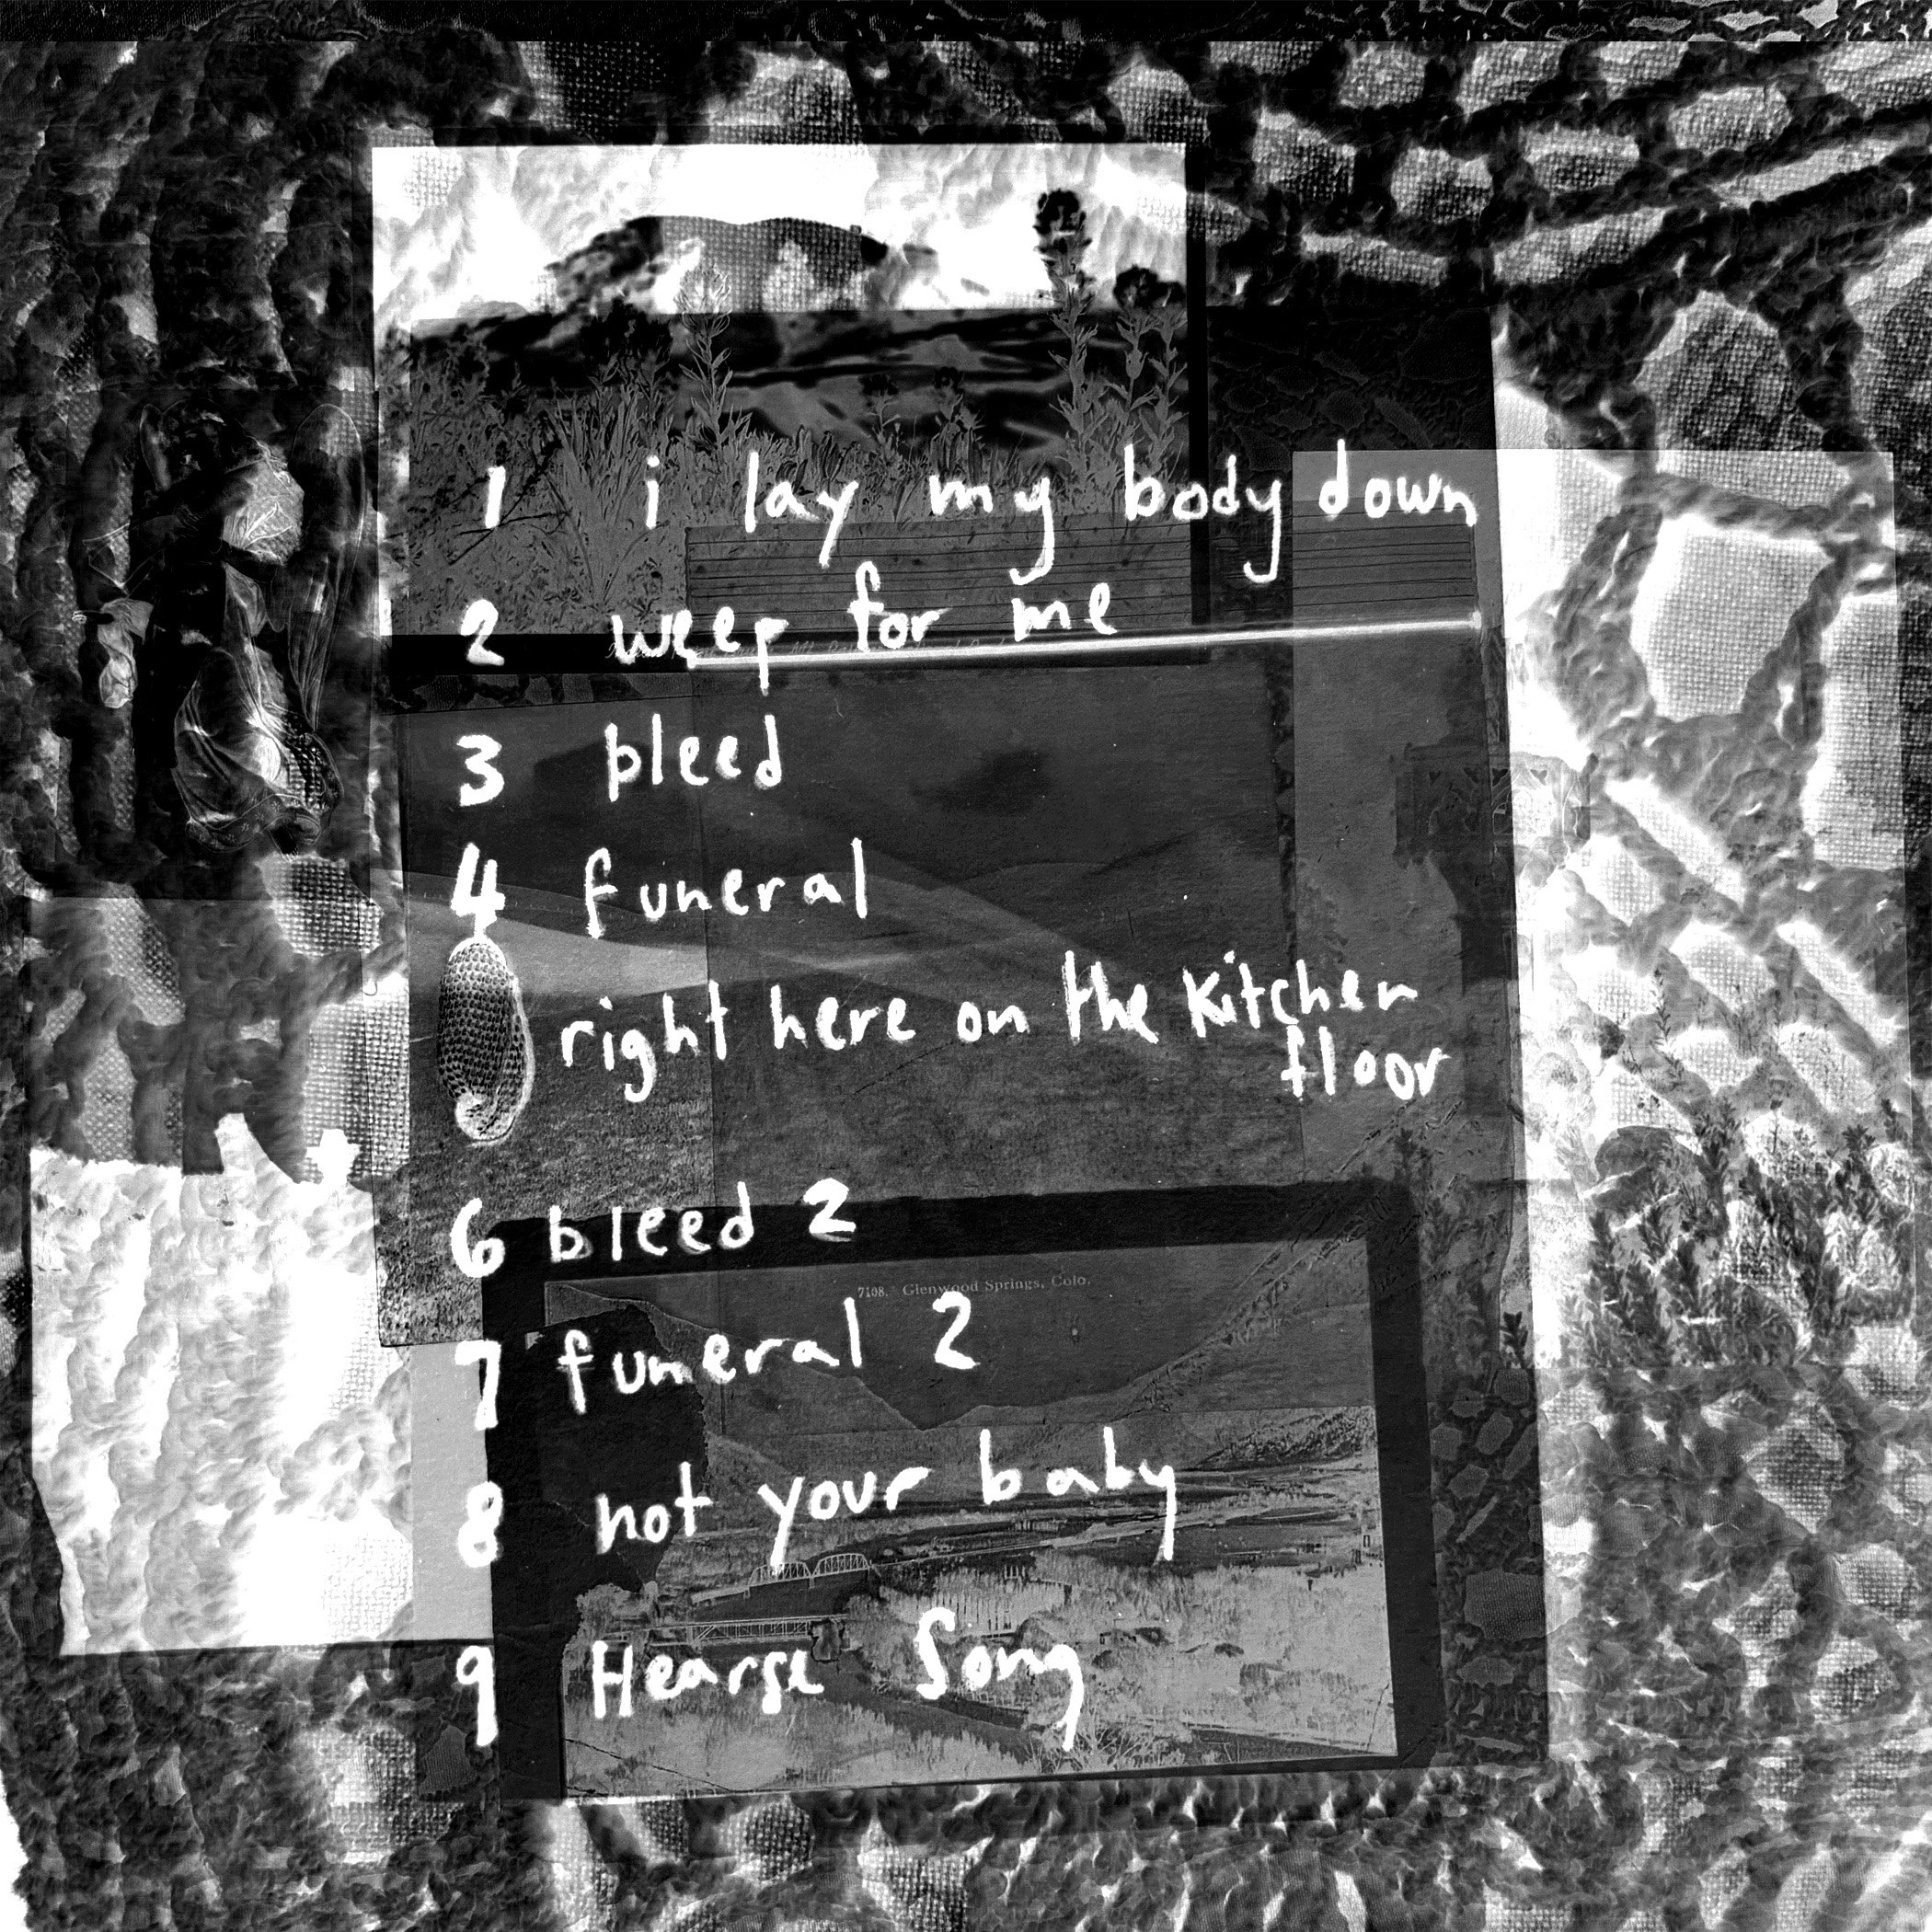 1 i lay my body down
2 weep for me
3 bleed
4 funeral
right here on the kitchen
floor
6 bleed 2
7108. Glenwood Springs, Colo.
7 funeral 2
8 not your baby
9 Hearse Song